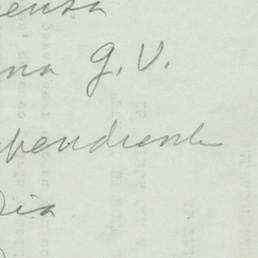 ensa
na G. V.
ependiente
dia